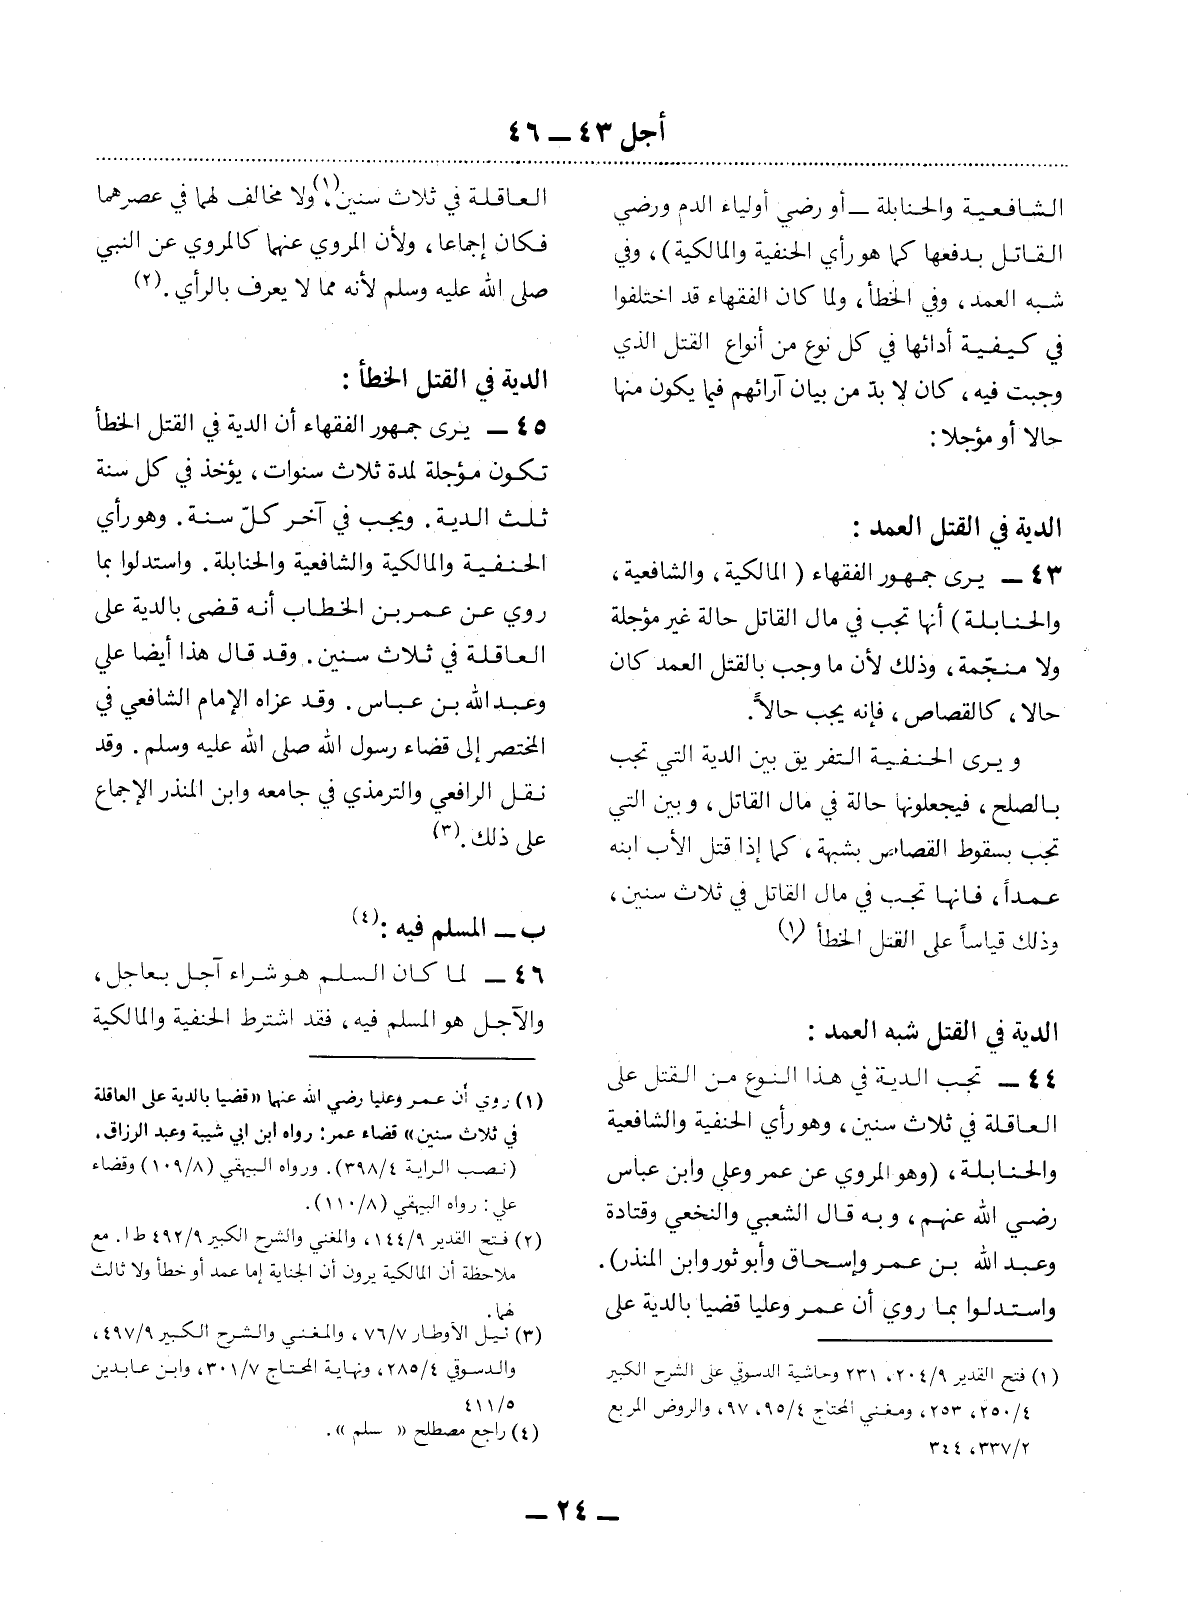 أجل ٤٣ ــ ٤٦
الشافعية والحنابلة ــ أو رضي أولياء الدم ورضي
القاتل بدفعها كما هو رأي الحنفية والمالكية) ، وفي
شبه العمد ، وفي الخطأ ، ولما كان الفقهاء قد اختلفوا
في كيفية أدائها في كل نوع من أنواع القتل الذي
وجبت فيه ، كان لا بدّ من بيان آرائهم فيما يكون منها
حالا أو مؤجلا :
الدية في القتل العمد :
٤٣ ــ يرى جمهور الفقهاء ( المالكية ، والشافعية ،
والحنابلة ) أنها تجب في مال القاتل حالة غير مؤجلة
ولا منجّمة ، وذلك لأن ما وجب بالقتل العمد كان
حالا ، كالقصاص ، فإنه يجب حالاً .
ويرى الحنفية التفريق بين الدية التي تجب
بالصلح ، فيجعلونها حالة في مال القاتل ، وبين التي
تجب بسقوط القصاص بشبهة ، كما إذا قتل الأب ابنه
عمداً ، فانها تجب في مال القاتل في ثلاث سنين ،
وذلك قياساً على القتل الخطأ (١)
الدية في القتل شبه العمد :
٤٤ ــ تجب الدية في هذا النوع من القتل على
العاقلة في ثلاث سنين ، وهو رأي الحنفية والشافعية
والحنابلة ، (وهو المروي عن عمر وعلي وابن عباس
رضي الله عنهم ، وبه قال الشعبي والنخعي وقتادة
وعبد الله بن عمر وإسحاق وأبو ثور وابن المنذر) .
واستدلوا بما روي أن عمر وعليا قضيا بالدية على
(١) فتح القدير ٢٠٤/٩ ، ٢٣١ وحاشية الدسوقي على الشرح الكبير
٢٥٠/٤ ، ٢٥٣ ، ومغني المحتاج ٩٥/٤ ، ٩٧ ، والروض المربع
٣٣٧/٢ ، ٣٤٤
العاقلة في ثلاث سنين ،(١) ولا مخالف لهما في عصرهما
فكان إجماعا ، ولأن المروي عنهما كالمروي عن النبي
صلى الله عليه وسلم لأنه مما لا يعرف بالرأي . (٢)
الدية في القتل الخطأ :
٤٥ ــ يرى جمهور الفقهاء أن الدية في القتل الخطأ
تكون مؤجلة لمدة ثلاث سنوات ، يؤخذ في كل سنة
ثلث الدية . ويجب في آخر كلّ سنة . وهو رأي
الحنفية والمالكية والشافعية والحنابلة . واستدلوا بما
روي عن عمر بن الخطاب أنه قضى بالدية على
العاقلة في ثلاث سنين . وقد قال هذا أيضا علي
وعبد الله بن عباس . وقد عزاه الإمام الشافعي في
المختصر إلى قضاء رسول الله صلى الله عليه وسلم . وقد
نقل الرافعي والترمذي في جامعه وابن المنذر الإجماع
على ذلك . (٣)
ب ــ المسلم فيه : (٤)
٤٦ ــ لما كان السلم هو شراء آجل بعاجل ،
والآجل هو المسلم فيه ، فقد اشترط الحنفية والمالكية
(١) روي أن عمر وعليا رضي الله عنهما « قضيا بالدية على العاقلة
في ثلاث سنين » قضاء عمر : رواه ابن ابي شيبة وعبد الرزاق .
(نصب الراية ٣٩٨/٤) . ورواه البيهقي (١٠٩/٨) وقضاء
علي : رواه البيهقي (١١٠/٨) .
(٢) فتح القدير ١٤٤/٩ ، والمغني والشرح الكبير ٤٩٢/٩ ط ا . مع
ملاحظة أن المالكية يرون أن الجناية إما عمد أو خطأ ولا ثالث
لهما .
(٣) نيل الأوطار ٧٦/٧ ، والمغني والشرح الكبير ٤٩٧/٩ ،
والدسوقي ٢٨٥/٤ ، ونهاية المحتاج ٣٠١/٧ ، وابن عابدين
٤١١/٥
(٤) راجع مصطلح « سلم » .
ــ ٢٤ ــ